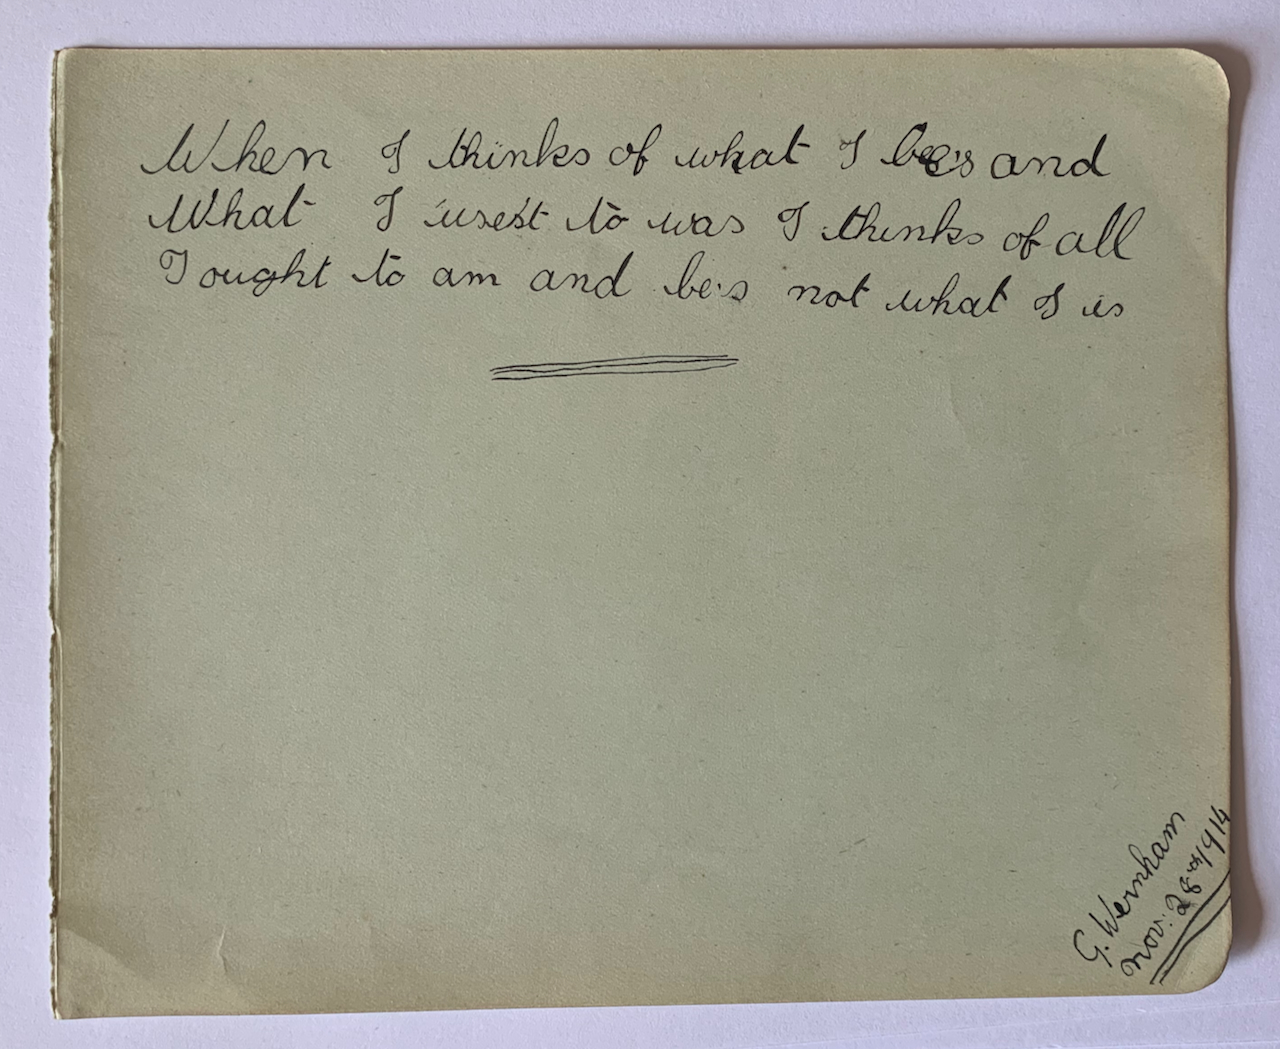 When I thinks of what I bees and
What I usest to was I thinks of all
I ought to am and bes not what I is
G. Wernham
Nov: 28th 1914